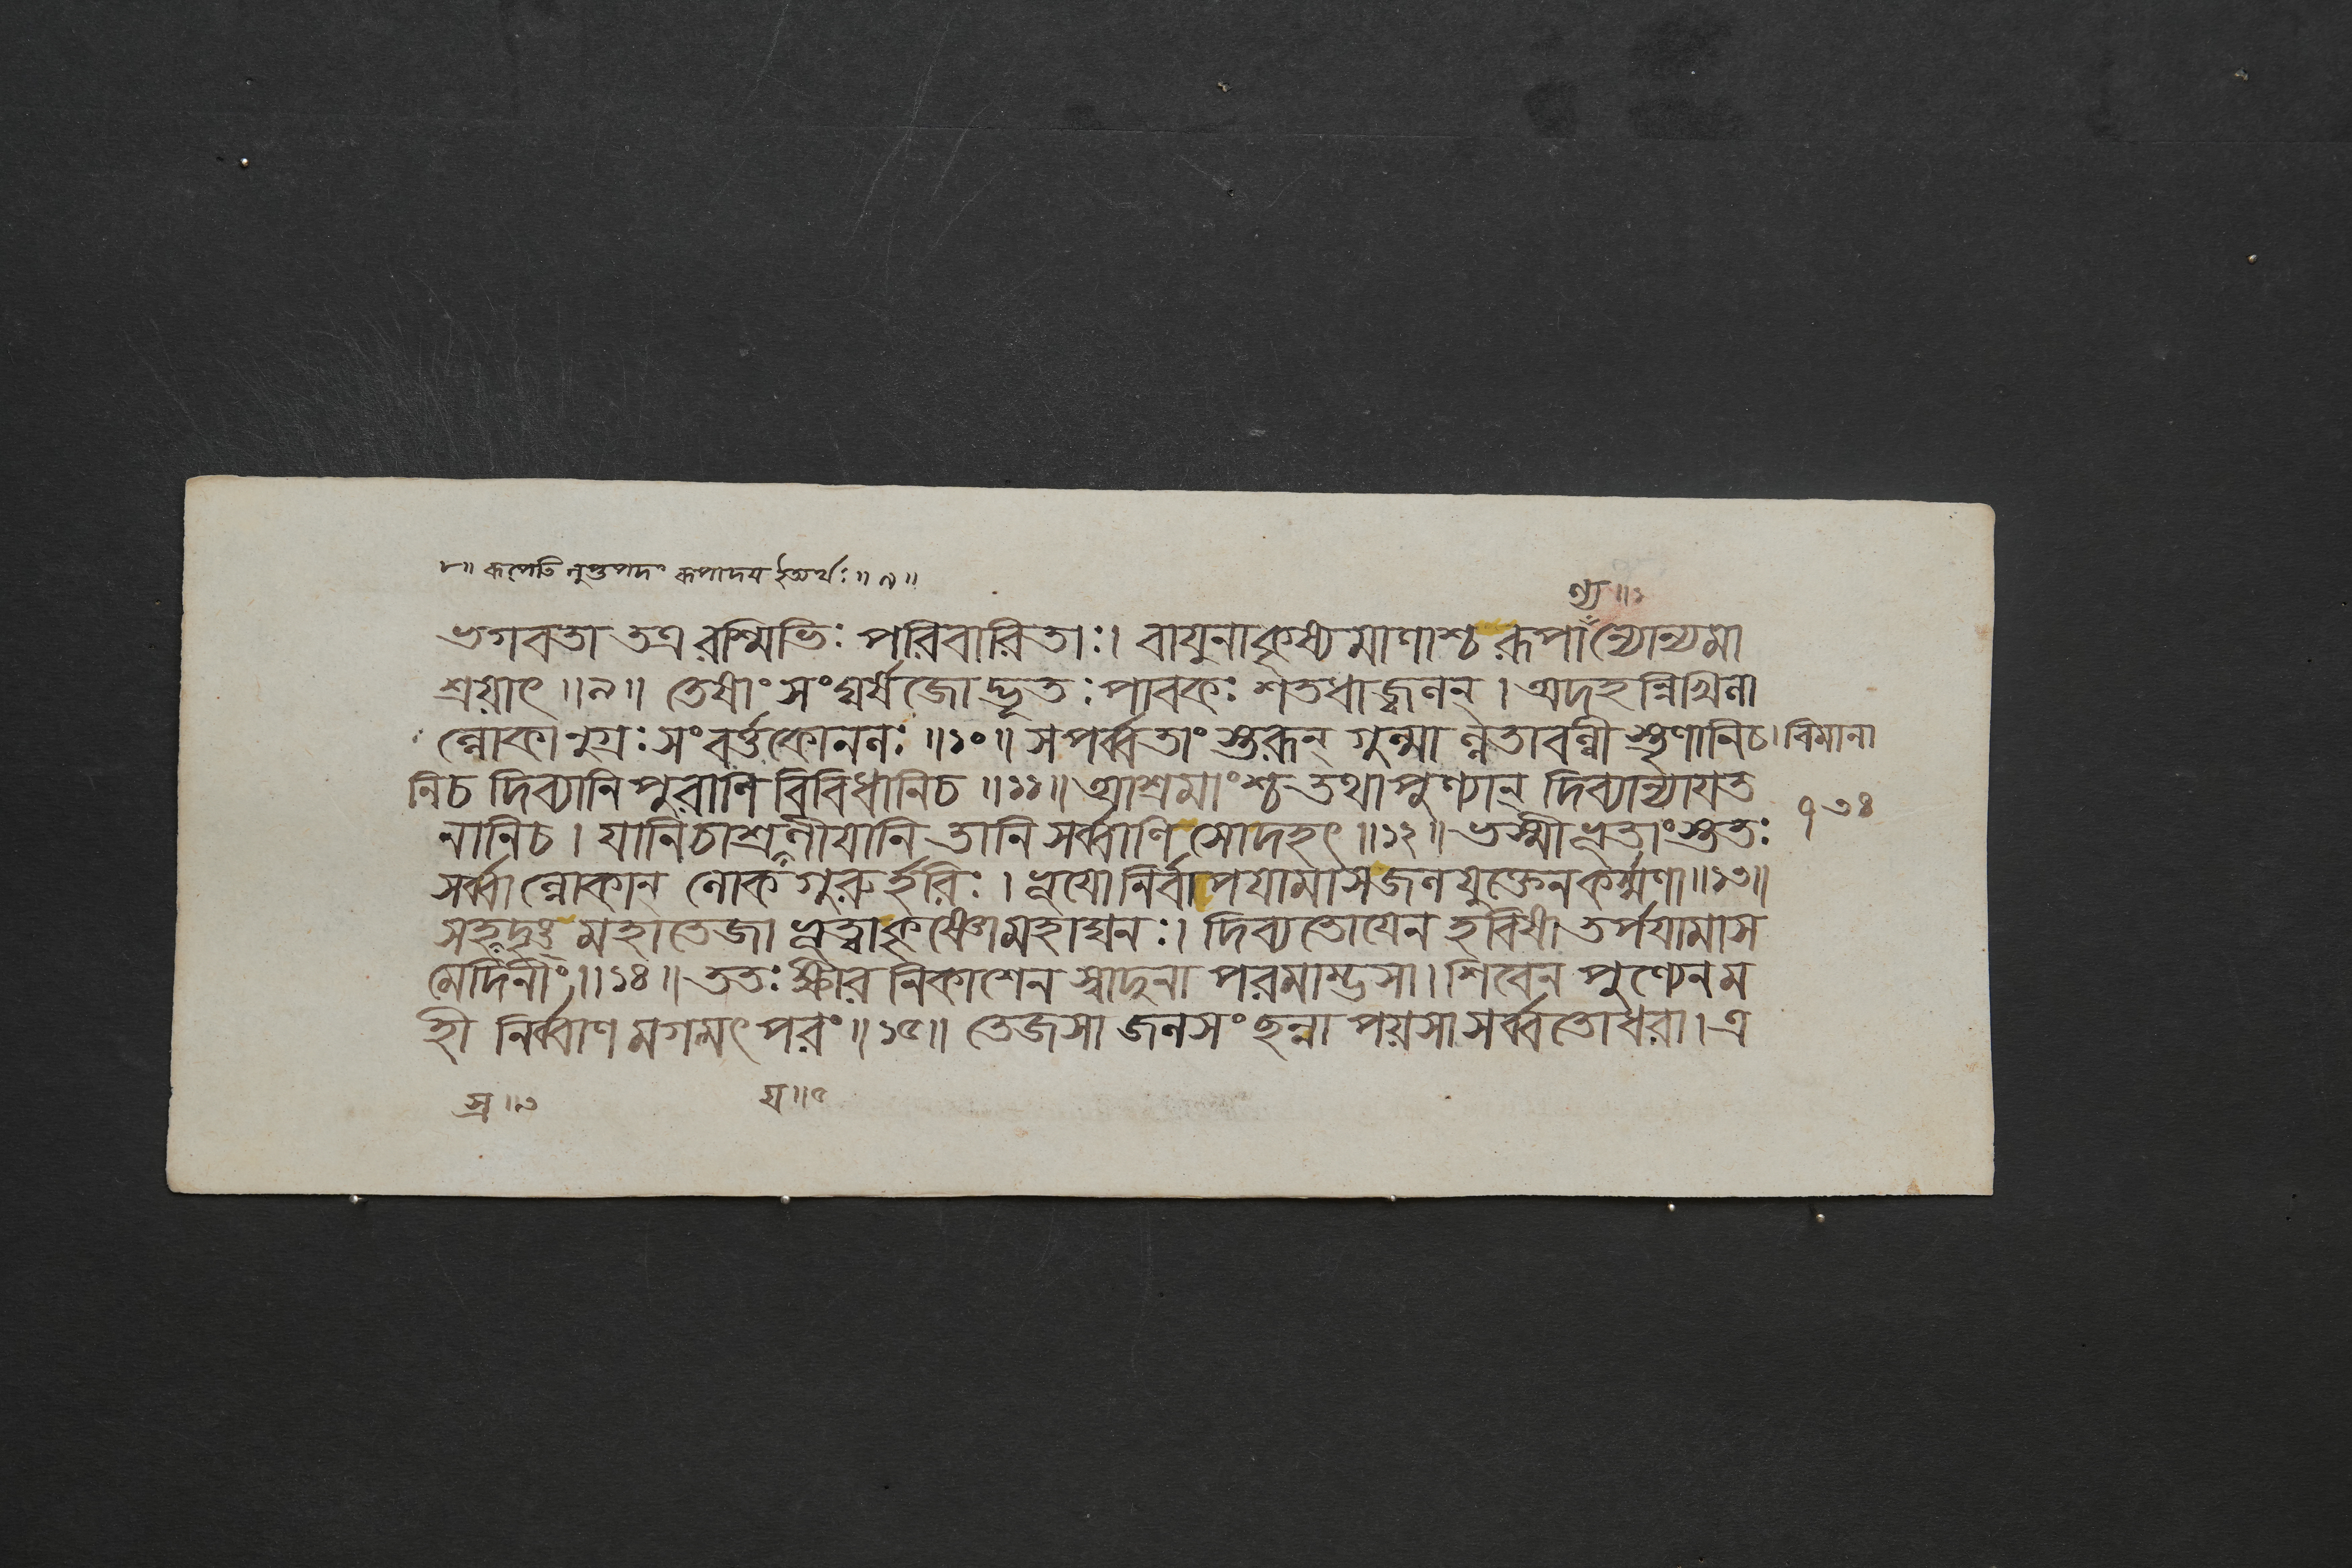 ৮॥ রূপেতি লুপ্তপদং রূপাদয় ইত্যর্থঃ ॥৯॥
ণ্য ॥১
ভগবতা তত্র রশ্মিভিঃ পরিবারিতাঃ। বায়ুনাকৃষ্যমাণাশ্চ রূপান্যোন্যমা
শ্রয়াৎ ॥৯॥ তেষাং সংঘর্ষজোদ্ভূতঃ পাবকঃ শতধাজ্বলন্। অদহন্নিখিলা
ল্লোকানুগ্রঃ সংবর্ত্তকোনলঃ ॥১০॥ সপর্ব্বতাংস্তরূন্ গুল্মাল্লতাবল্লীস্তৃণানিচ। বিমানা
নিচ দিব্যানি পুরাণি বিবিধানিচ ॥১১॥ আশ্রমাংশ্চ তথাপুণ্যান্ দিব্যান্যায়ত
৭৩৪
নানিচ। যানিচাশ্রয়ণীয়ানি তানি সর্ব্বাণি সোদহৎ ॥১২॥ ভস্মীভূতাংস্ততঃ
সর্ব্বাল্লোকান্ লোকগুরুর্হরিঃ। ভূয়োনির্বাপয়ামাস জলযুক্তেন কর্ম্মণা ॥১৩॥
সহস্রদৃঙ্ মহাতেজা ভূত্বাকৃষ্ণোমহাঘনঃ। দিব্যতোয়েন হবিষা তর্পয়ামাস
মেদিনীং ॥১৪॥ ততঃ ক্ষীরনিকাশেন স্বাদুনা পরমাম্ভসা। শিবেন পুণ্যেনম
হী নির্ব্বাণমগমৎ পরং ॥১৫॥ তেজসা জলসংছন্না পয়সাসর্ব্বতোধরা। এ
স্র ॥৩
য় ॥৫